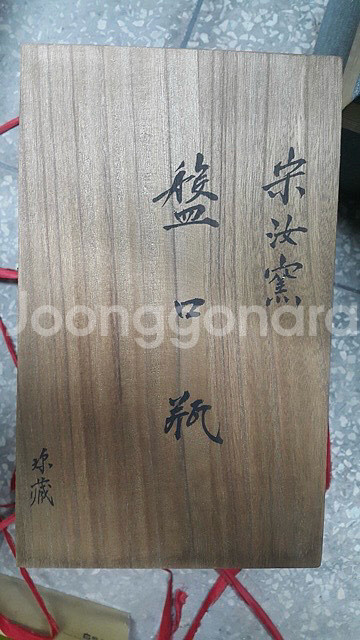 宋汝窯
盤口瓶
珍藏
Joonggonara